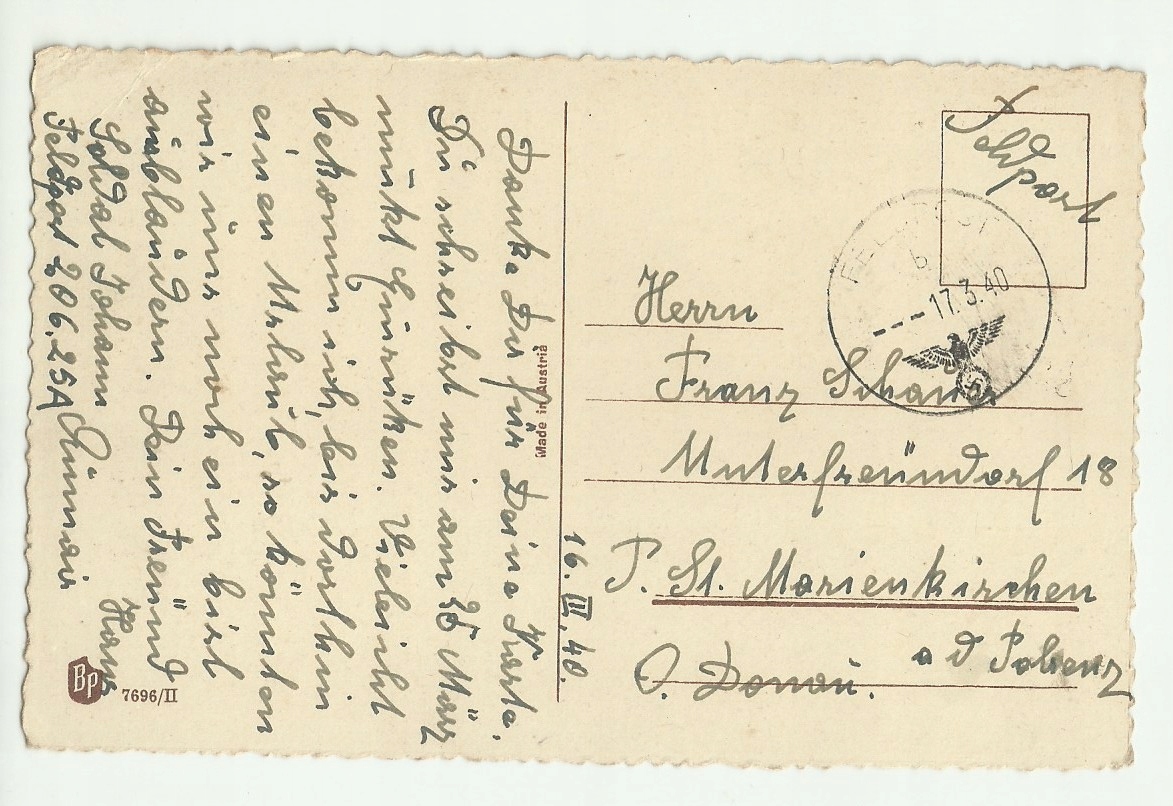 Danke Dir für Deine Karte.
Du schreibst mir am 25 März
mukt
bekomm ich, bis dorthin
einen Urlaub, so könnten
wir uns noch ein bisl
ausblaudern. Dein Freund
Hans
Soldat Johann
Feldpost 206.25A
16.III.40.
Made in Austria
Bp
7696/II
Feldpost
FELDPOST
b
---17.3.40
Herrn
Franz Schauer
Unterfreundorf 18
P. St. Marienkirchen
a d Polsenz
O. Donau.